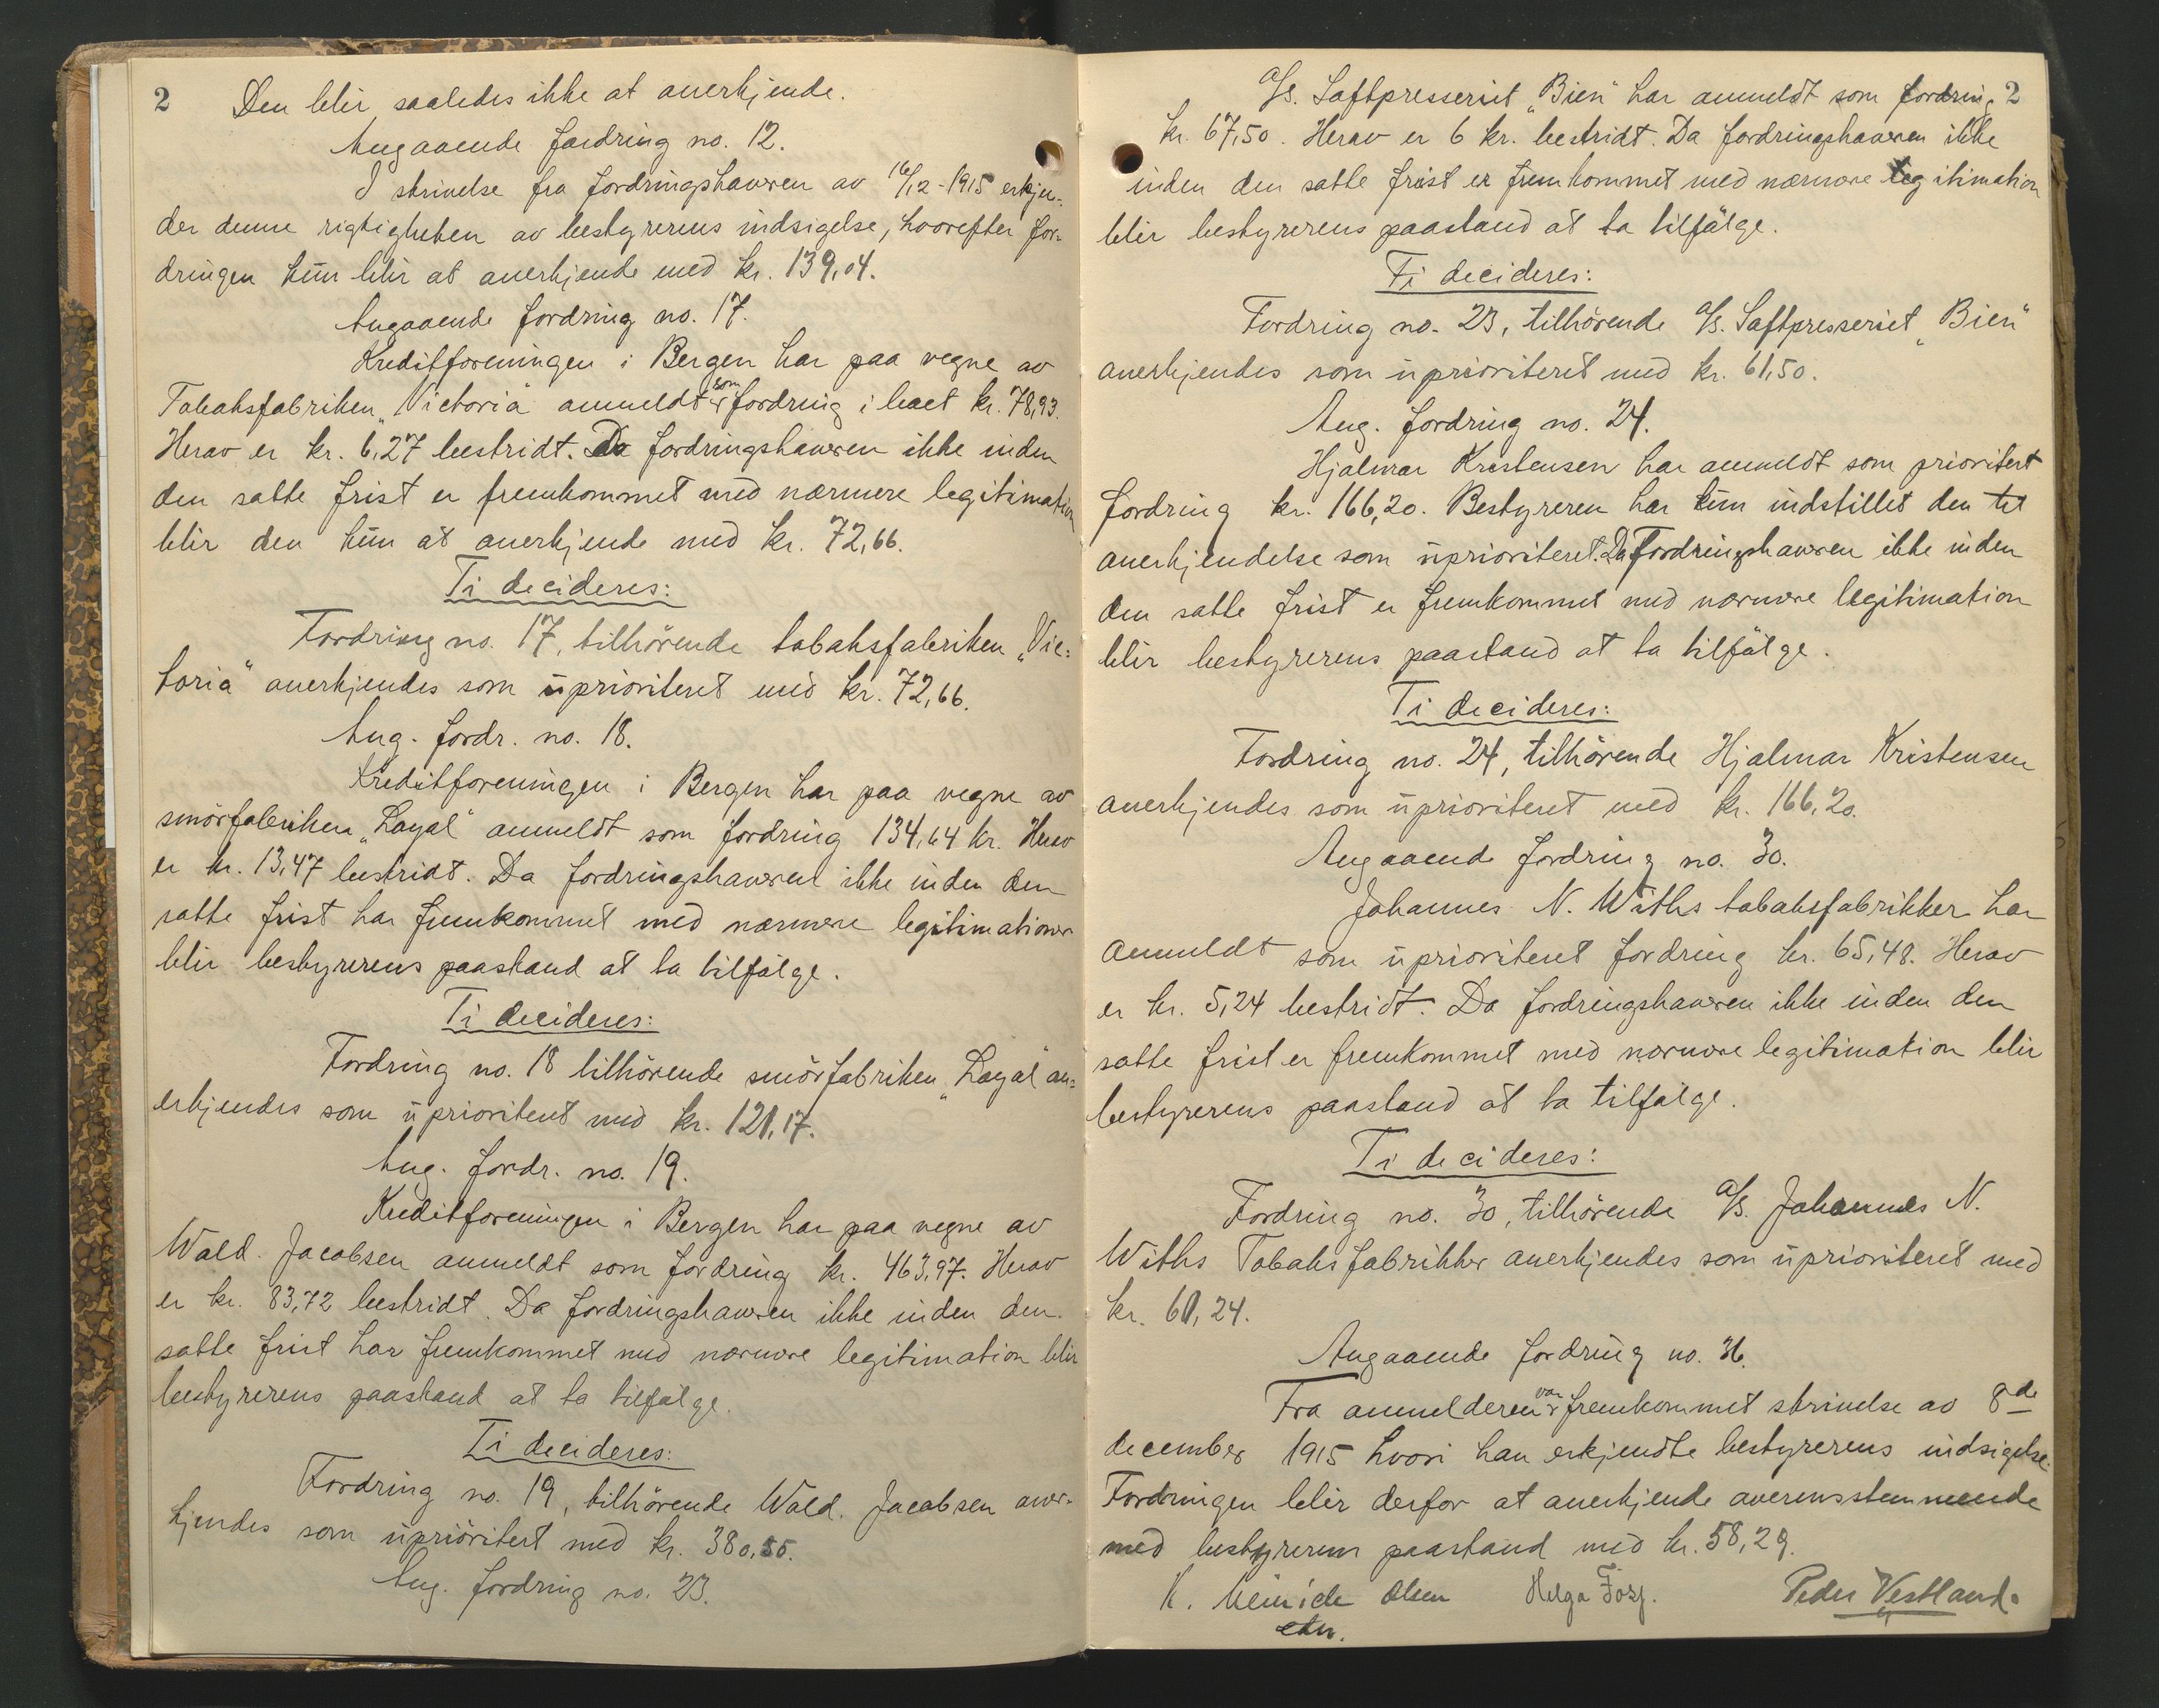 2
Den blir saaledes ikke at anerkjende.
Angaaende fordring no. 12.
I skrivelse fra fordringshaveren av 16/12-1915 erkjen-
der denne rigtigheten av bestyrerens indsigelse, hvorefter for-
dringen kun blir at anerkjende med kr. 139,04.
Angaaende fordring no. 17.
Kreditforeningen i Bergen har paa vegne av
Tobaksfabriken „Victoria" anmeldt som fordring i boet kr. 78,93.
Herav er kr. 6,27 bestridt. Da fordringshaveren ikke inden
den satte frist er fremkommet med nærmere legitimation
blir den kun at anerkjende med kr. 72,66.
Ti decideres:
Fordring no. 17, tilhörende tobaksfabriken „Vic-
toria" anerkjendes som uprioriteret med kr. 72,66.
Ang. fordr. no. 18.
Kreditforeningen i Bergen har paa vegne av
smörfabriken „Loyal" anmeldt som fordring 134,64 kr. Herav
er kr. 13,47 bestridt. Da fordringshaveren ikke inden den
satte frist har fremkommet med nærmere legitimationer
blir bestyrerens paastand at ta tilfölge.
Ti decideres:
Fordring no. 18 tilhörende smörfabriken „Loyal" an-
erkjendes som uprioritert med kr. 121,17.
Ang. fordr. no. 19.
Kreditforeningen i Bergen har paa vegne av
Wald. Jacobsen anmeldt som fordring kr. 463,97. Herav
er kr. 83,72 bestridt. Da fordringshaveren ikke inden den
satte frist har fremkommet med nærmere legitimation blir
bestyrerens paastand at ta tilfölge.
Ti decideres:
Fordring no. 19, tilhörende Wald. Jacobsen aner-
kjendes som uprioritert med kr. 380,55.
Ang. fordring no. 23.
2
A/S. Saftpresseriet „Bien" har anmeldt som fordring
kr. 67,50. Herav er 6 kr. bestridt. Da fordringshaveren ikke
inden den satte frist er fremkommet med nærmere legitimation
blir bestyrerens paastand at ta tilfölge.
Ti decideres:
Fordring no. 23, tilhörende A/S. Saftpresseriet „Bien"
anerkjendes som uprioriteret med kr. 61,50.
Ang. fordring no. 24.
Hjalmar Kristensen har anmeldt som prioritert
fordring kr. 166,20. Bestyreren har kun indstillet den til
anerkjendelse som uprioriteret. Da Fordringshaveren ikke inden
den satte frist er fremkommet med nærmere legitimation
blir bestyrerens paastand at ta tilfölge.
Ti decideres:
Fordring no. 24, tilhörende Hjalmar Kristensen
anerkjendes som uprioriteret med kr. 166,20.
Angaaende fordring no. 30.
Johannes N. Withs tobaksfabrikker har
anmeldt som uprioriteret fordring kr. 65,48. Herav
er kr. 5,24 bestridt. Da fordringshaveren ikke inden den
satte frist er fremkommet med nærmere legitimation blir
bestyrerens paastand at ta tilfölge.
Ti decideres:
Fordring no. 30, tilhörende A/S. Johannes N.
Withs Tobaksfabrikker anerkjendes som uprioriteret med
kr. 60,24.
Angaaende fordring no. 36.
Fra anmelderen var fremkommet skrivelse av 8de
december 1915 hvori han erkjendte bestyrerens indsigelse.
Fordringen blir derfor at anerkjende overensstemmende
med bestyrerens paastand med kr. 58,29.
K. Meinich Olsen Helga Fosz. Peder Vestland.